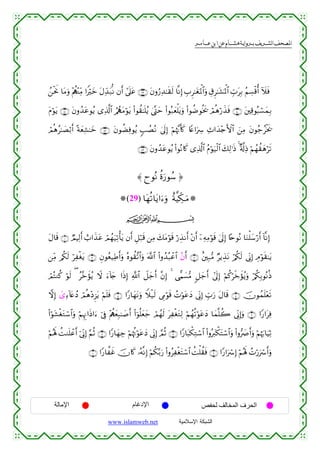 المصحف الشريف برواية هشام عن ابن عامر
فَلَآ أُقْسِمُ بِرَبِّ ٱلْمَشَٰرِقِ وَٱلْمَغَٰرِبِ إِنَّا لَقَٰدِرُونَ عَلَىٰٓ أَن نُّبَدِّلَ خَيْرًا مِّنْهُمْ وَمَا نَحْنُ
بِمَسْبُوقِينَ فَذَرْهُمْ يَخُوضُوا۟ وَيَلْعَبُوا۟ حَتَّىٰ يُلَٰقُوا۟ يَوْمَهُمُ ٱلَّذِى يُوعَدُونَ يَوْمَ
يَخْرُجُونَ مِنَ ٱلْأَجْدَاثِ سِرَاعًا كَأَنَّهُمْ إِلَىٰ نُصُبٍ يُوفِضُونَ خَٰشِعَةً أَبْصَٰرُهُمْ
تَرْهَقُهُمْ ذِلَّةٌ ذَٰلِكَ ٱلْيَوْمُ ٱلَّذِى كَانُوا۟ يُوعَدُونَ
﴿ سُورَةُ نُوحٍ ﴾
مَكِّيَّةٌ وَءَايَاتُهَا (29)
بِسْمِ ٱللَّهِ ٱلرَّحْمَٰنِ ٱلرَّحِيمِ
إِنَّآ أَرْسَلْنَا نُوحًا إِلَىٰ قَوْمِهِۦٓ أَنْ أَنذِرْ قَوْمَكَ مِن قَبْلِ أَن يَأْتِيَهُمْ عَذَابٌ أَلِيمٌ قَالَ
يَٰقَوْمِ إِنِّى لَكُمْ نَذِيرٌ مُّبِينٌ أَنُ ٱعْبُدُوا۟ ٱللَّهَ وَٱتَّقُوهُ وَأَطِيعُونِ يَغْفِرْ لَكُم مِّن
ذُنُوبِكُمْ وَيُؤَخِّرْكُمْ إِلَىٰٓ أَجَلٍ مُّسَمًّى إِنَّ أَجَلَ ٱللَّهِ إِذَا جَآءَ لَا يُؤَخَّرُ لَوْ كُنتُمْ
تَعْلَمُونَ قَالَ رَبِّ إِنِّى دَعَوْتُ قَوْمِى لَيْلًا وَنَهَارًا فَلَمْ يَزِدْهُمْ دُعَآءِىَ إِلَّا
فِرَارًا وَإِنِّى كُلَّمَا دَعَوْتُهُمْ لِتَغْفِرَ لَهُمْ جَعَلُوٓا۟ أَصَٰبِعَهُمْ فِىٓ ءَاذَانِهِمْ وَٱسْتَغْشَوْا۟
ثِيَابَهُمْ وَأَصَرُّوا۟ وَٱسْتَكْبَرُوا۟ ٱسْتِكْبَارًا ثُمَّ إِنِّى دَعَوْتُهُمْ جِهَارًا ثُمَّ إِنِّىٓ أَعْلَنتُ لَهُمْ
وَأَسْرَرْتُ لَهُمْ إِسْرَارًا فَقُلْتُ ٱسْتَغْفِرُوا۟ رَبَّكُمْ إِنَّهُۥ كَانَ غَفَّارًا
الحرف المخالف لحفص الإدغام الإمالة
الشبكة الإسلامية www.islamweb.net